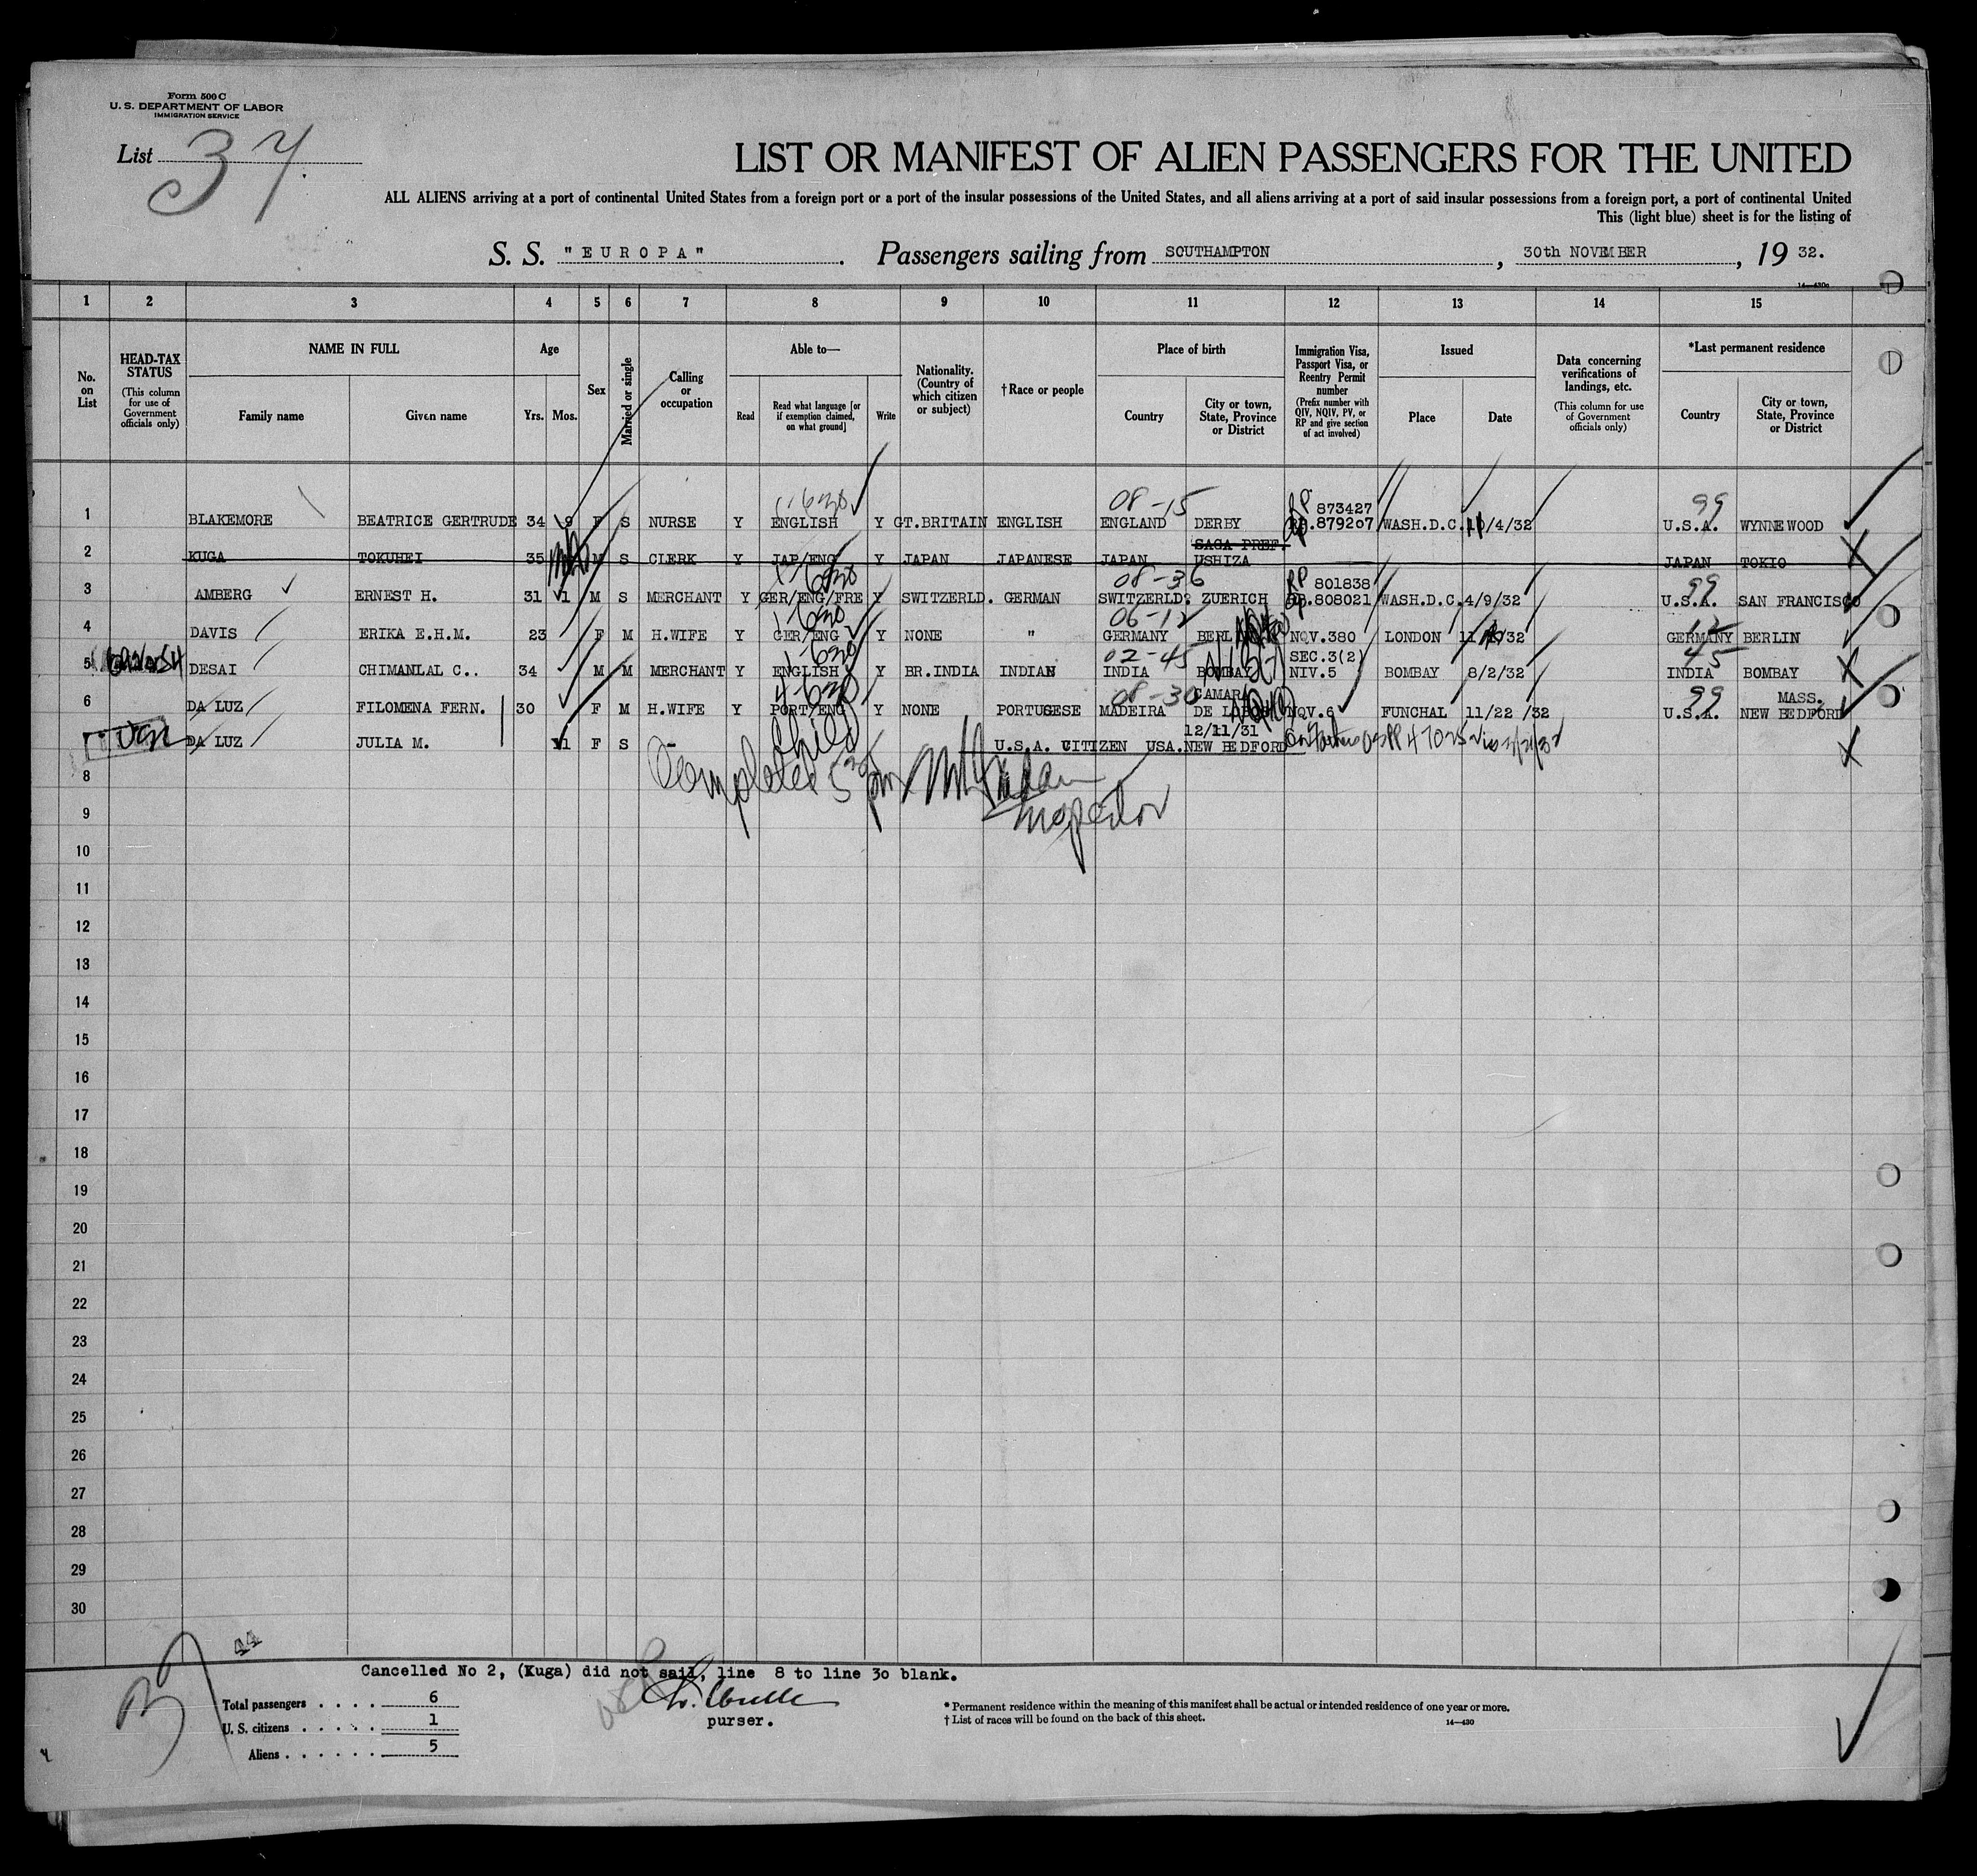 Form 500 C
U. S. DEPARTMENT OF LABOR
IMMIGRATION SERVICE
List 37
LIST OR MANIFEST OF ALIEN PASSENGERS FOR THE UNITED
ALL ALIENS arriving at a port of continental United States from a foreign port or a port of the insular possessions of the United States, and all aliens arriving at a port of said insular possessions from a foreign port, a port of continental United
This (light blue) sheet is for the listing of
S. S. "EUROPA". Passengers sailing from SOUTHAMPTON, 30th NOVEMBER, 19 32.
14—430c
1 2 3 4 5 6 7 8 9 10 11 12 13 14 15
No. on List
HEAD-TAX STATUS (This column for use of Government officials only)
NAME IN FULL
Family name
Given name
Age
Yrs. Mos.
Sex
Married or single
Calling or occupation
Able to—
Read
Read what language [or if exemption claimed, on what ground]
Write
Nationality. (Country of which citizen or subject)
† Race or people
Place of birth
Country
City or town, State, Province or District
Immigration Visa, Passport Visa, or Reentry Permit number (Prefix number with QIV, NQIV, PV, or RP and give section of act involved)
Issued
Place
Date
Data concerning verifications of landings, etc. (This column for use of Government officials only)
*Last permanent residence
Country
City or town, State, Province or District
08-15 RP 873427 99
1 BLAKEMORE BEATRICE GERTRUDE 34 9 F S NURSE Y ENGLISH Y GT.BRITAIN ENGLISH ENGLAND DERBY RP.879207 WASH.D.C. /4/32 U.S.A. WYNNEWOOD
SAGA PREF.
2 KUGA TOKUHEI 35 M S CLERK Y JAP/ENG Y JAPAN JAPANESE JAPAN USHIZA JAPAN TOKIO
08-36 RP 801838 99
3 AMBERG ERNEST H. 31 1 M S MERCHANT Y GER/ENG/FRE Y SWITZERLD. GERMAN SWITZERLD. ZUERICH RP.808021 WASH.D.C. 4/9/32 U.S.A. SAN FRANCISCO
06-12 12
4 DAVIS ERIKA E.H.M. 23 F M H.WIFE Y GER/ENG Y NONE " GERMANY NQV.380 LONDON GERMANY BERLIN
02-45 SEC.3(2) 45
5 DESAI CHIMANLAL C.. 34 M M MERCHANT Y ENGLISH Y BR.INDIA INDIAN INDIA BOMBAY NIV.5 BOMBAY 8/2/32 INDIA BOMBAY
08-30 99 MASS.
6 DA LUZ FILOMENA FERN. 30 F M H.WIFE Y PORT/ENG Y NONE PORTUGESE MADEIRA NQV.6 FUNCHAL 11/22/32 U.S.A. NEW BEDFORD
Child 12/11/31
DA LUZ JULIA M. 11 F S - U.S.A. CITIZEN USA. NEW BEDFORD
Completed
Inspector
8
9
10
11
12
13
14
15
16
17
18
19
20
21
22
23
24
25
26
27
28
29
30
44
Cancelled No 2, (Kuga) did not sail, line 8 to line 30 blank.
Total passengers . . . . 6
U. S. citizens . . . . . 1
Aliens . . . . . . 5
purser.
* Permanent residence within the meaning of this manifest shall be actual or intended residence of one year or more.
† List of races will be found on the back of this sheet.
14—430